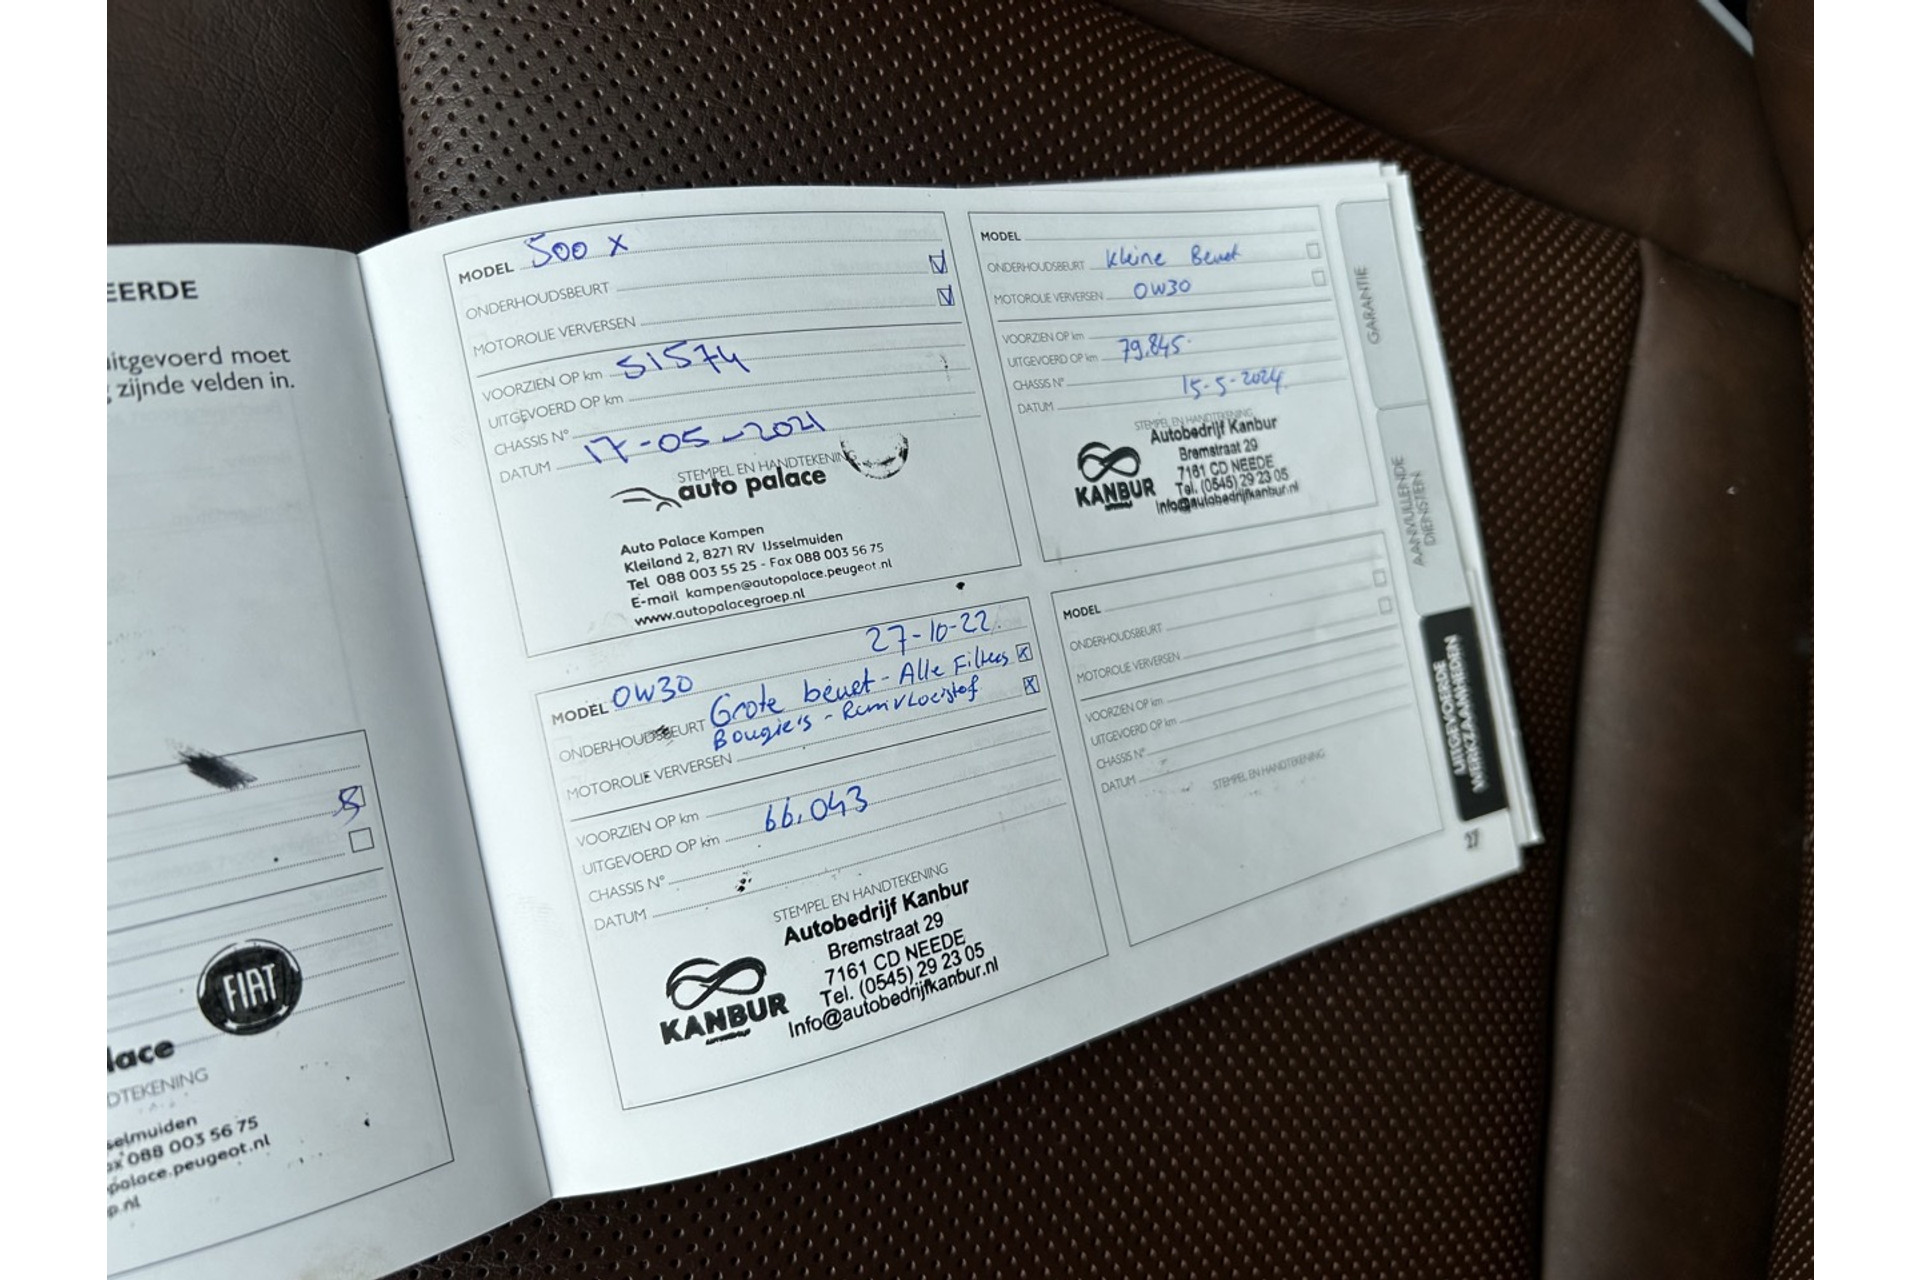 EERDE
uitgevoerd moet
zijnde velden in.
FIAT
lace
DTEKENING
selmuiden
ax 088 003 56 75
palace.peugeot.nl
p.nl
MODEL 500 X
ONDERHOUDSBEURT
MOTOROLIE VERVERSEN
VOORZIEN OP km 51574
UITGEVOERD OP km
CHASSIS N°
DATUM 17-05-2021
STEMPEL EN HANDTEKENING
auto palace
Auto Palace Kampen
Kleiland 2, 8271 RV IJsselmuiden
Tel 088 003 55 25 - Fax 088 003 56 75
E-mail kampen@autopalace.peugeot.nl
www.autopalacegroep.nl
27-10-22.
MODEL 0W30
ONDERHOUDSBEURT Grote beurt - Alle Filters
Bougie's - Remvloeistof
MOTOROLIE VERVERSEN
VOORZIEN OP km
UITGEVOERD OP km 66.043
CHASSIS N°
DATUM
STEMPEL EN HANDTEKENING
KANBUR
Autobedrijf Kanbur
Bremstraat 29
7161 CD NEEDE
Tel. (0545) 29 23 05
Info@autobedrijfkanbur.nl
MODEL
ONDERHOUDSBEURT Kleine Beurt
MOTOROLIE VERVERSEN 0W30
VOORZIEN OP km
UITGEVOERD OP km 79.845
CHASSIS N°
DATUM 15-5-2024
STEMPEL EN HANDTEKENING
KANBUR
Autobedrijf Kanbur
Bremstraat 29
7161 CD NEEDE
Tel. (0545) 29 23 05
Info@autobedrijfkanbur.nl
MODEL
ONDERHOUDSBEURT
MOTOROLIE VERVERSEN
VOORZIEN OP km
UITGEVOERD OP km
CHASSIS N°
DATUM
STEMPEL EN HANDTEKENING
GARANTIE
AANVULLENDE
DIENSTEN
UITGEVOERDE
WERKZAAMHEDEN
27